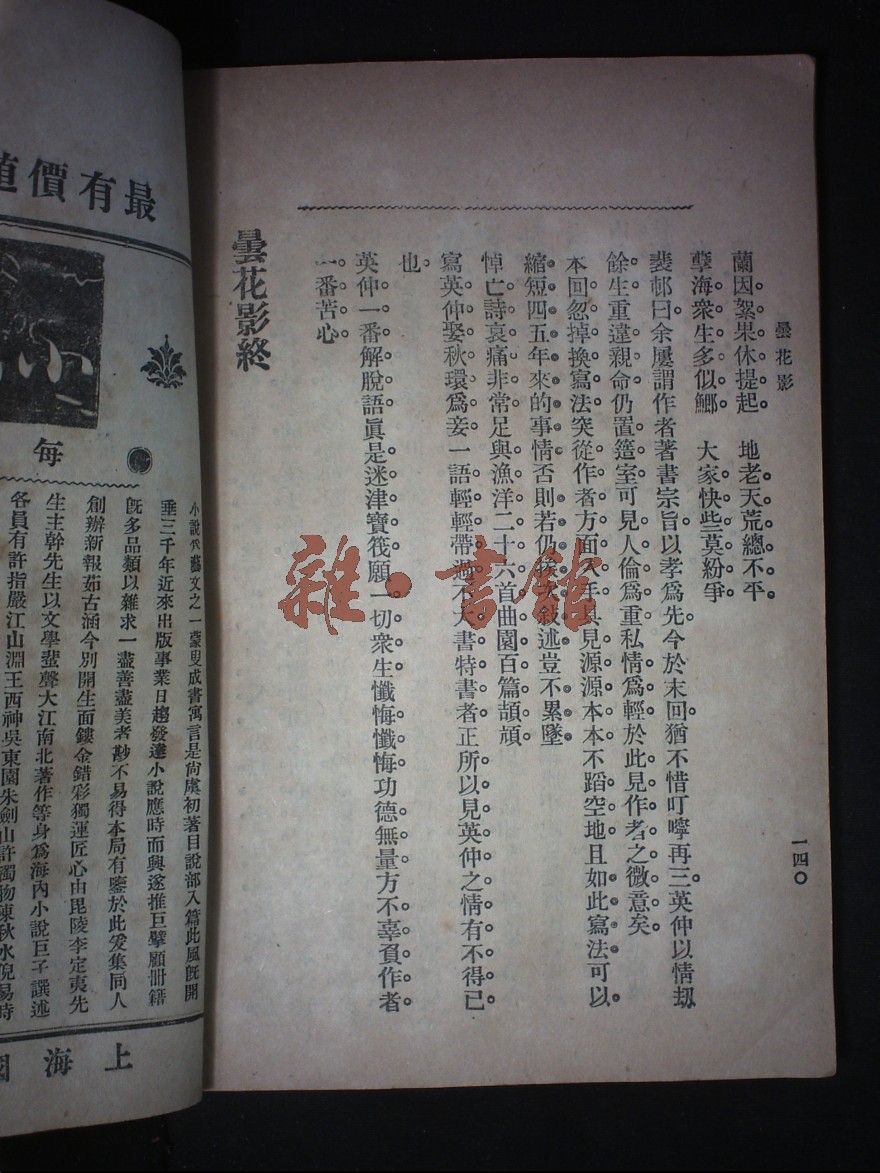 曇花影
一四〇
蘭因絮果休提起。　地老天荒總不平。
孽海衆生多似鯽。　大家快些莫紛爭。
裴邨曰余屢謂作者著書宗旨以孝爲先今於末回猶不惜叮嚀再三英仲以情刼
餘生重違親命仍置簉室可見人倫爲重私情爲輕於此見作者之微意矣。
本回忽掉換寫法突從作者方面入手具見源源本本不蹈空地且如此寫法可以
縮短四五年來的事情否則若仍挨次敍述豈不累墜
悼亡詩哀痛非常足與漁洋二十六首曲園百篇頡頏
寫英仲娶秋環爲妾一語輕輕帶過不大書特書者正所以見英仲之情有不得已
也。
英仲一番解脫語眞是迷津寶筏願一切衆生懺悔懺悔功德無量方不辜負作者
一番苦心。
曇花影終
雜·書館
最有價値
小
每
小說代藝文之一蒙叟成書寓言是尙虞初著目說部入篇此風旣開
垂三千年近來出版事業日趨發達小說應時而興遂推巨擘顧冊籍
旣多品類以雜求一盡善盡美者尠不易得本局有鑒於此爰集同人
創辦新報茹古涵今別開生面鏤金錯彩獨運匠心由毘陵李定夷先
生主幹先生以文學蜚聲大江南北著作等身爲海內小說巨子譔述
各員有許指嚴江山淵王西神吳東園朱劍山許獨物陳秋水倪易時
上海國